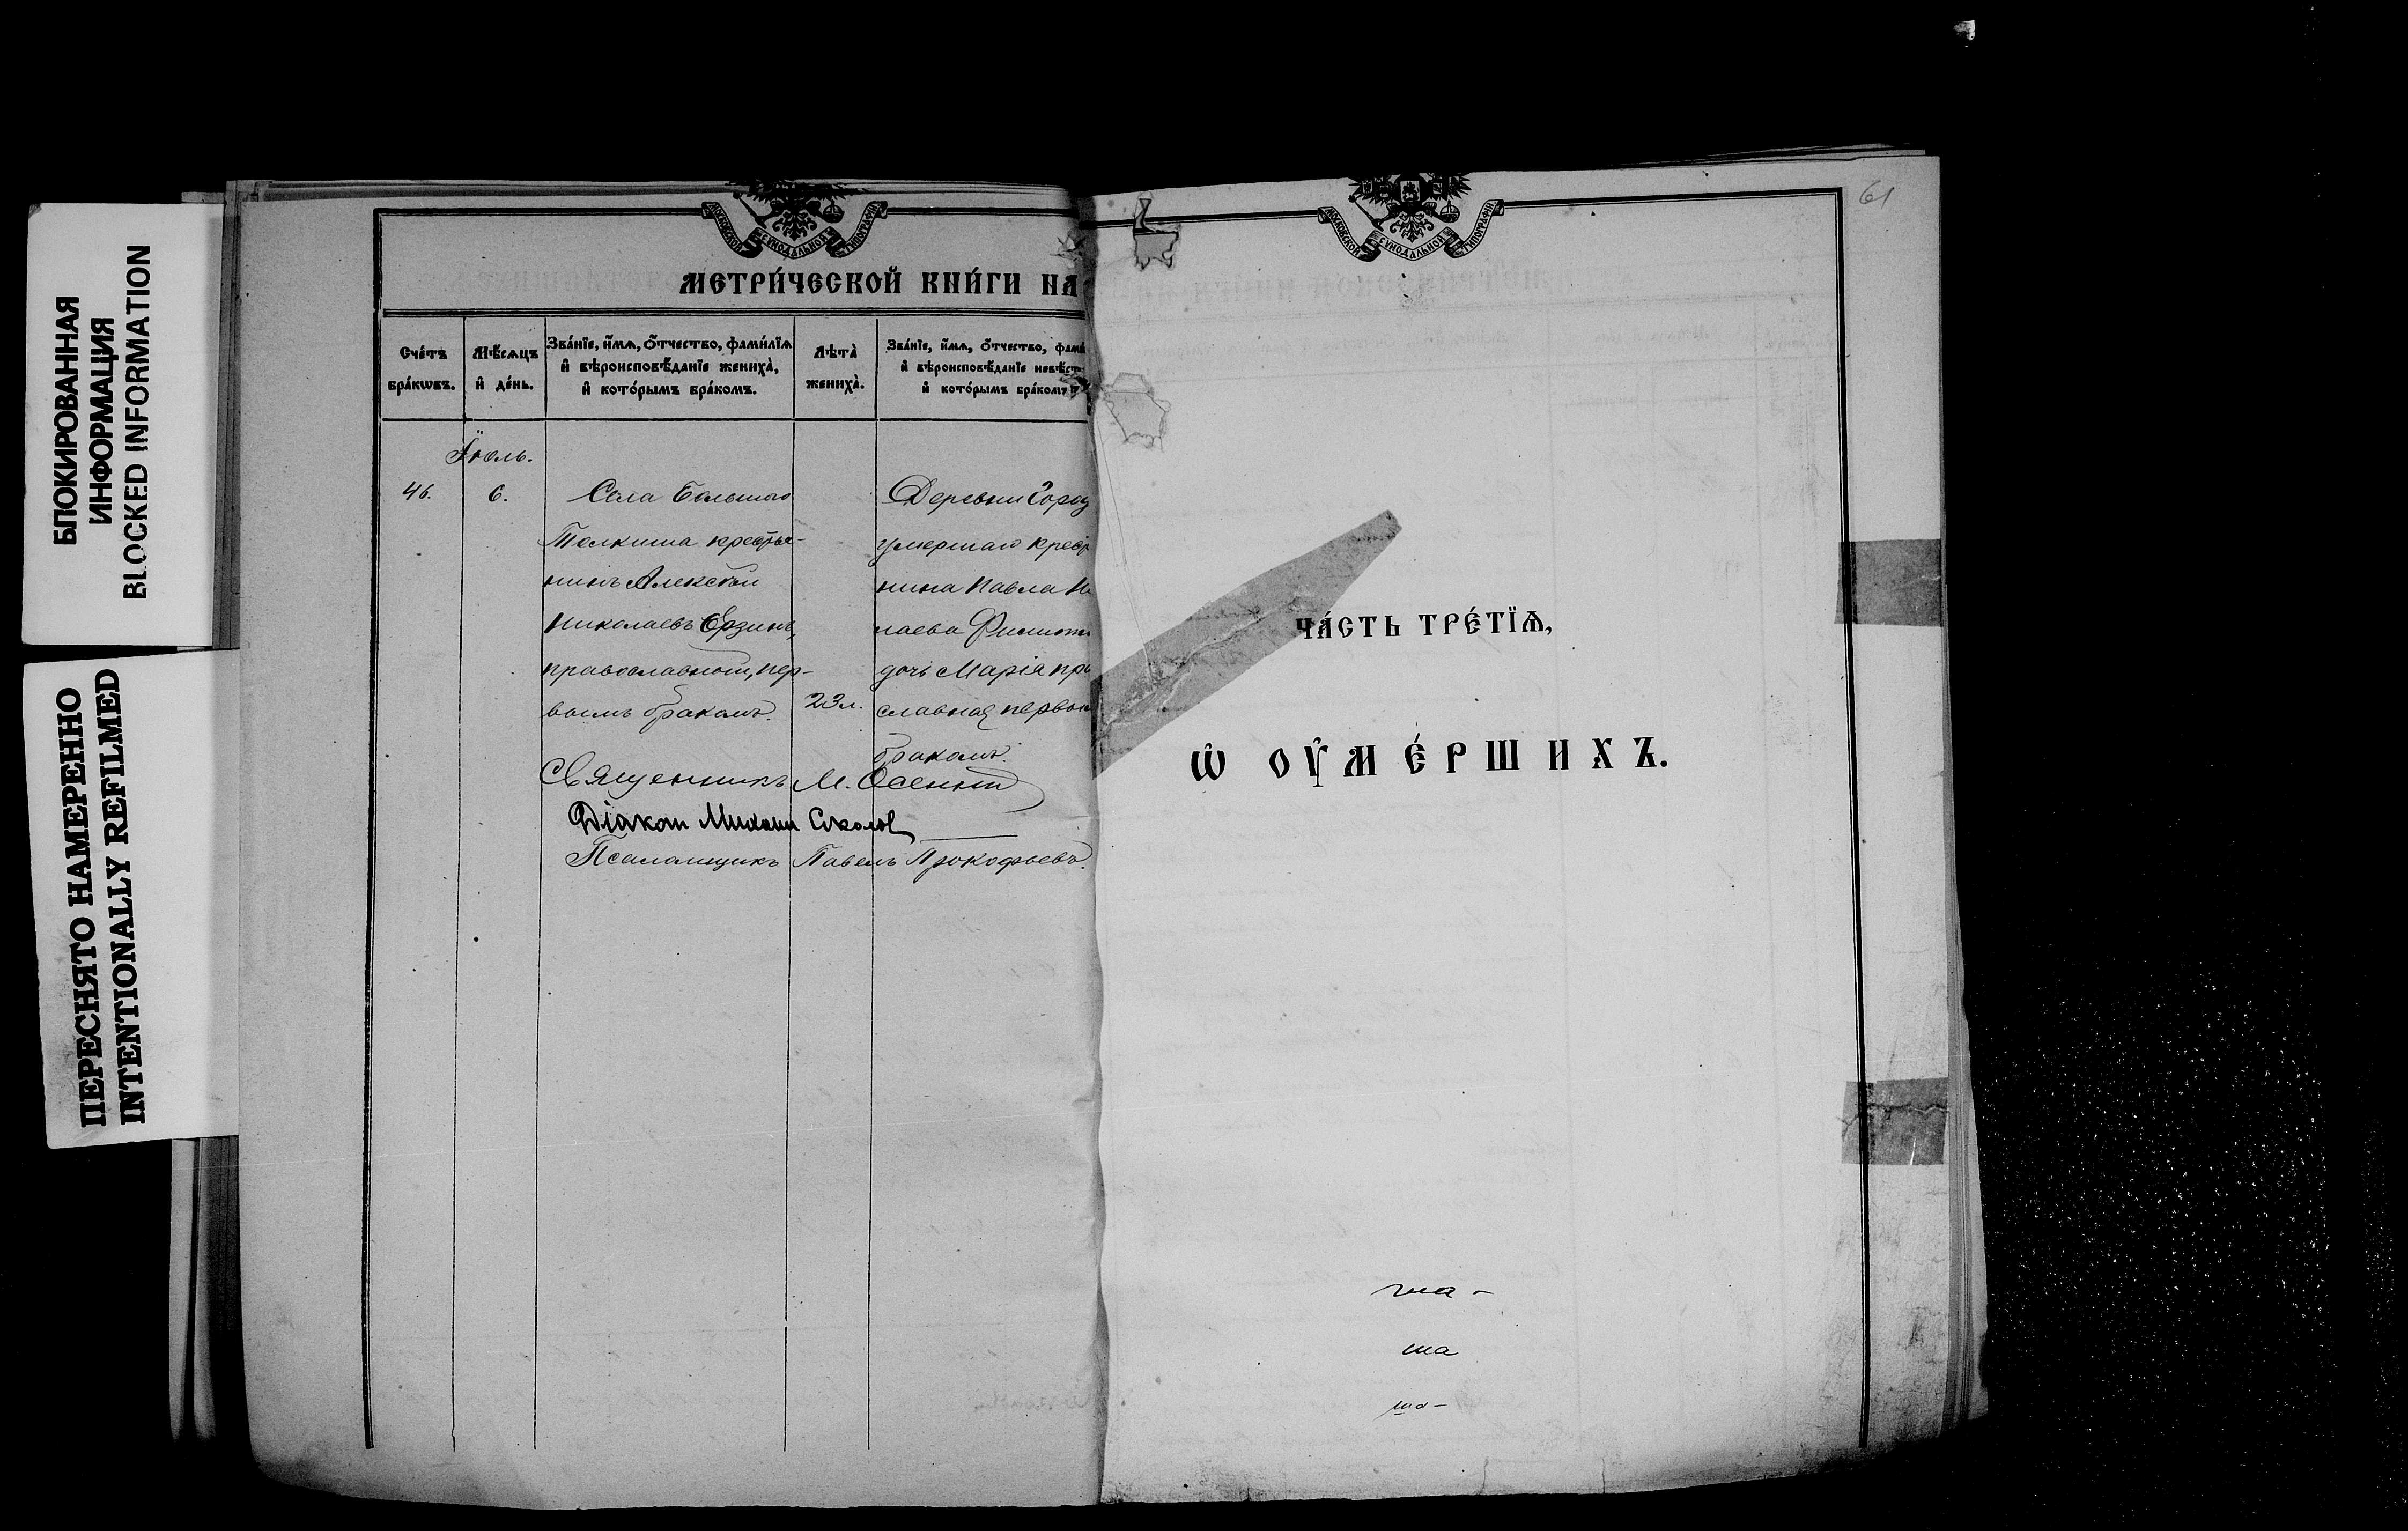 БЛОКИРОВАННАЯ
ИНФОРМАЦИЯ
BLOCKED INFORMATION
ПЕРЕСНЯТО НАМЕРЕННО
INTENTIONALLY REFILMED
МОСКОВСКОЙ СѴНОДАЛЬНОЙ ТИПОГРАФІИ
МЕТРИ́ЧЕСКОЙ КНИ́ГИ НА
Сче́тъ бра́кѡвъ.
Мѣ́сѧцъ и҆ де́нь.
Зва́нїе, и҆́мѧ, ѻ҆́тчество, фами́лїѧ
и҆ вѣроисповѣ́данїе жениха̀,
и҆ кото́рымъ бра́комъ.
Лѣта̀ жениха̀.
Зва́нїе, и҆́мѧ, ѻ҆́тчество, фами
и҆ вѣроисповѣ́данїе невѣ́ст
и҆ кото́рымъ бра́комъ
Іюль.
46. 6.
Села Большаго
Толкиша крестья-
нинъ Алексѣй
Николаевъ Ерзинъ,
православный, пер-
вымъ бракомъ.
23 л.
Деревни Город
умершаго крест
нина Павла Ни
лаева Филипп
дочь Марія пра
славная, первым
бракомъ.
Священникъ М. Осенній
Діакон Михаил Соколов
Псаломщикъ Павелъ Прокофьевъ.
61
МОСКОВСКОЙ СѴНОДАЛЬНОЙ ТИПОГРАФІИ
ЧА́СТЬ ТРЕ́ТЇѦ,
Ѡ҆ ОУ҆МЕ́РШИХЪ.
ша -
ша
ша -